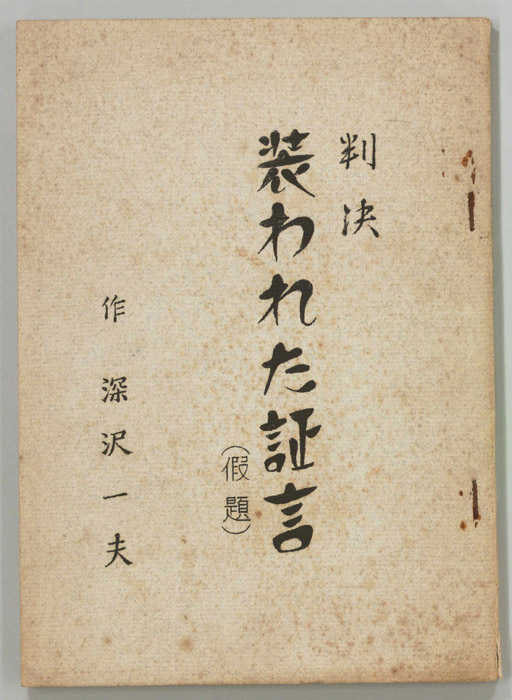 判決
装われた証言
（假題）
作 深沢一夫